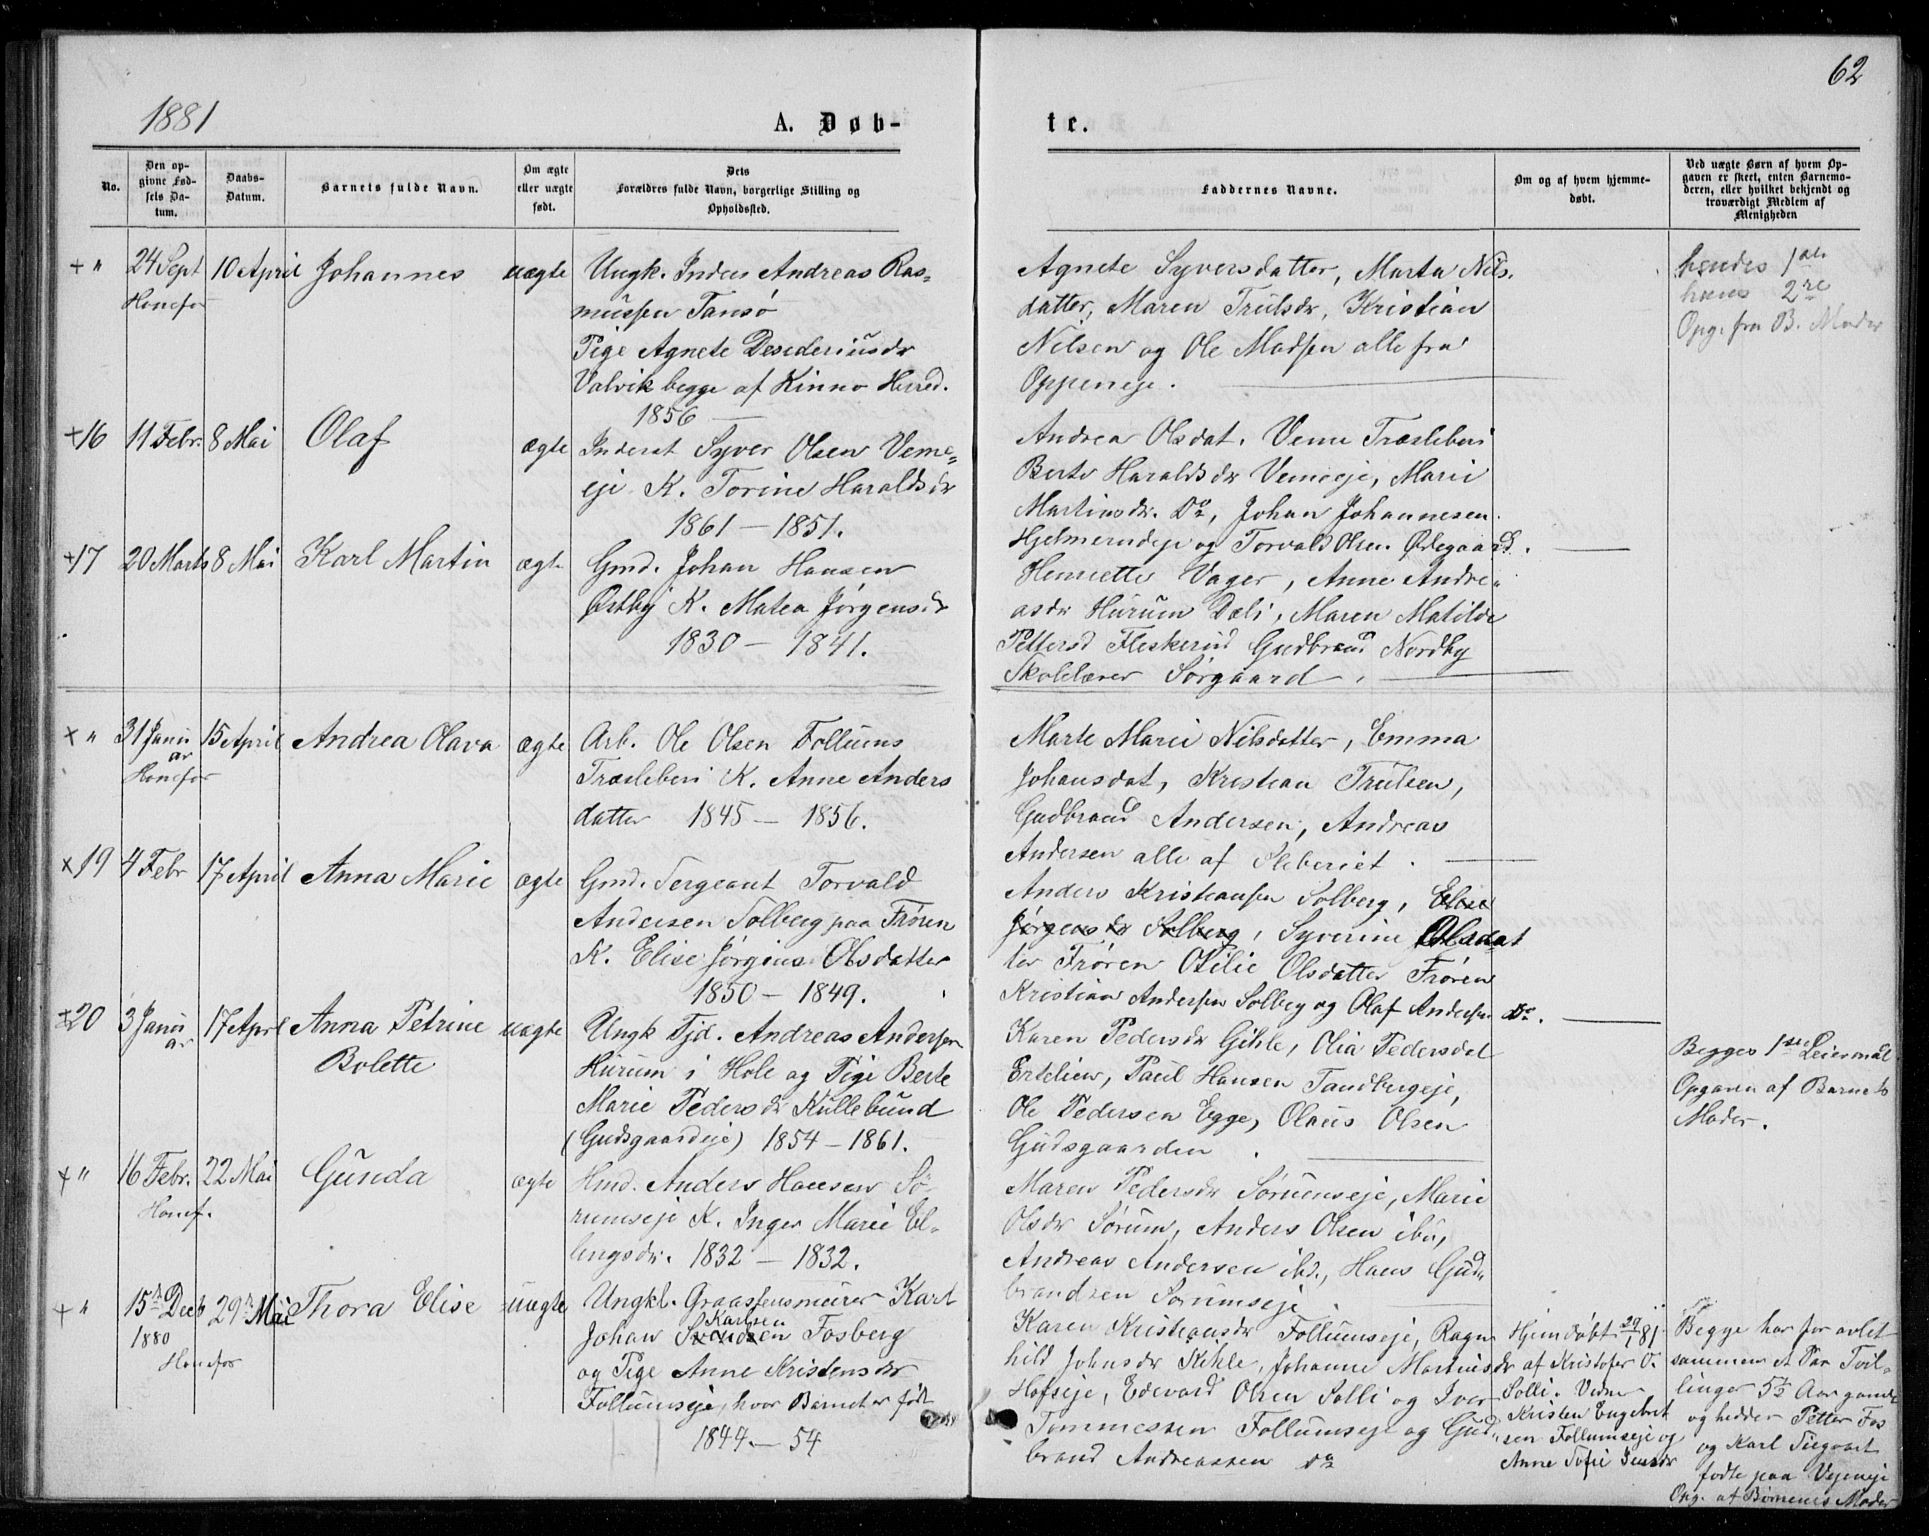 62
1881
A. Døb-
te.
No.
Den op-
givne Fød-
sels Da-
tum.
Daabs-
Datum.
Barnets fulde Navn.
Om ægte
eller uægte
født.
Dets
Forældres fulde Navn, borgerlige Stilling og
Opholdssted.
Faddernes Navne.
Om og af hvem hjemme-
døbt.
Ved uægte Børn af hvem Op-
gaven er skeet, enten Barnemo-
deren, eller hvilket bekjendt og
troværdigt Medlem af
Menigheden
+ " 24 Sept 10 April Johannes uægte
Honefos
Ungk. Inders Andreas Ras-
mussen Tansø
Pige Agnete Desederiusdr
Valvik begge af Kinno Herred.
1856 —
Agnete Syversdatter, Marta Nils-
datter, Maren Trulsdr, Kristian
Nilsen og Ole Madsen alle fra
Oppeneje.
hendes 1ste
hans 2re
Opg. fra B. Moder
+16 11 Febr. 8 Mai Olaf ægte
Inderst Syver Olsen Veme-
eje K. Torine Haraldsdr
1861 — 1851.
Andrea Olsdat. Veme Træsleberi
Berte Haraldsdr Vemeeje, Marie
Martinsdr. Do, Johan Johannesen
Hjelmerudeje og Torvald Olsen Ødegaard.
+17 20 Marts 8 Mai Karl Martin ægte
Gmd. Johan Hansen
Østby K. Matea Jørgensdr
1830 — 1841.
Henriette Vager, Anne Andre-
asdr Hurum Dæli, Maren Matilde
Pettersd Fleskerud Gudbrand Nordby
Skolelærer Sørgaard.
+ " 31 Janu 15 April Andrea Olava ægte
ar
Honefos
Arb. Ole Olsen Follums
Træsleberi K. Anne Anders
datter 1845 — 1856.
Marte Marie Nilsdatter, Emma
Johansdat, Kristian Trulsen,
Gudbrand Andersen, Andreas
Andersen alle af Sleberiet.
+19 4 Febr 17 April Anna Marie ægte
Gmd. Sergeant Torvald
Andersen Solberg paa Frøren
K. Elise Jørgine Olsdatter
1850 — 1849.
Anders Kristiansen Solberg, Elise
Jørgensdr Solberg, Syverine Olsdat
ter Frøren Otilie Olsdatter Frøren
Kristian Andersen Solberg og Olaf Andersen Do.
+20 3 Janu 17 Aprl Anna Petrine uægte
ar Bolette
Ungk Tjd. Andreas Andersen
Hurum i Hole og Pige Berte
Marie Pedersdr Kullebund
(Gudsgaardeje) 1854 — 1861.
Karen Pedersdr Gihle, Olia Pedersdat
Ertelien, Paul Hansen Tandbergeje,
Ole Pedersen Egge, Olaus Olsen
Gudsgaarden.
Begges 1ste Leiermål
Opgaven af Barnets
Moder.
+ " 16 Febr. 22 Mai Gunda ægte
Honef.
Hmd. Anders Hansen Sø-
rumseje K. Inger Marie El-
lingsdr. 1832 — 1832.
Maren Pedersdr Sørumseje, Marie
Olsdr Sørum, Anders Olsen ibd,
Andreas Andersen ibd., Hans Gud-
brandsen Sørumseje.
+ " 15de Decb 29de Mai Thora Elise uægte
1880
Honefos
Ungkl. Graastensmurer Karl
Karlsen
Johan Svendsen Fosberg
og Pige Anne Kristensdr
Follumseje, hvor Barnet er født
1844 — 54
Karen Kristiansdr Follumseje, Ragn
hild Johnsdr Kihle, Johanne Martins
dr
Hofseje, Edevard Olsen Solli og Iver
Tommessen Follumseje og Gud-
brand Andreassen Do
Hjemdøbt 29/1 81
af Kristofer O.
Solli. Vidner
Kristen Engebret
sen Follumseje og
Anne Sofie Jensdr
Begge har før avlet
sammen et Par Tvil-
linger 5½ Aar gamle
og hedder Petter Fos
og Karl
fødte paa Vejeneje
Opg. af Børnenes Moder